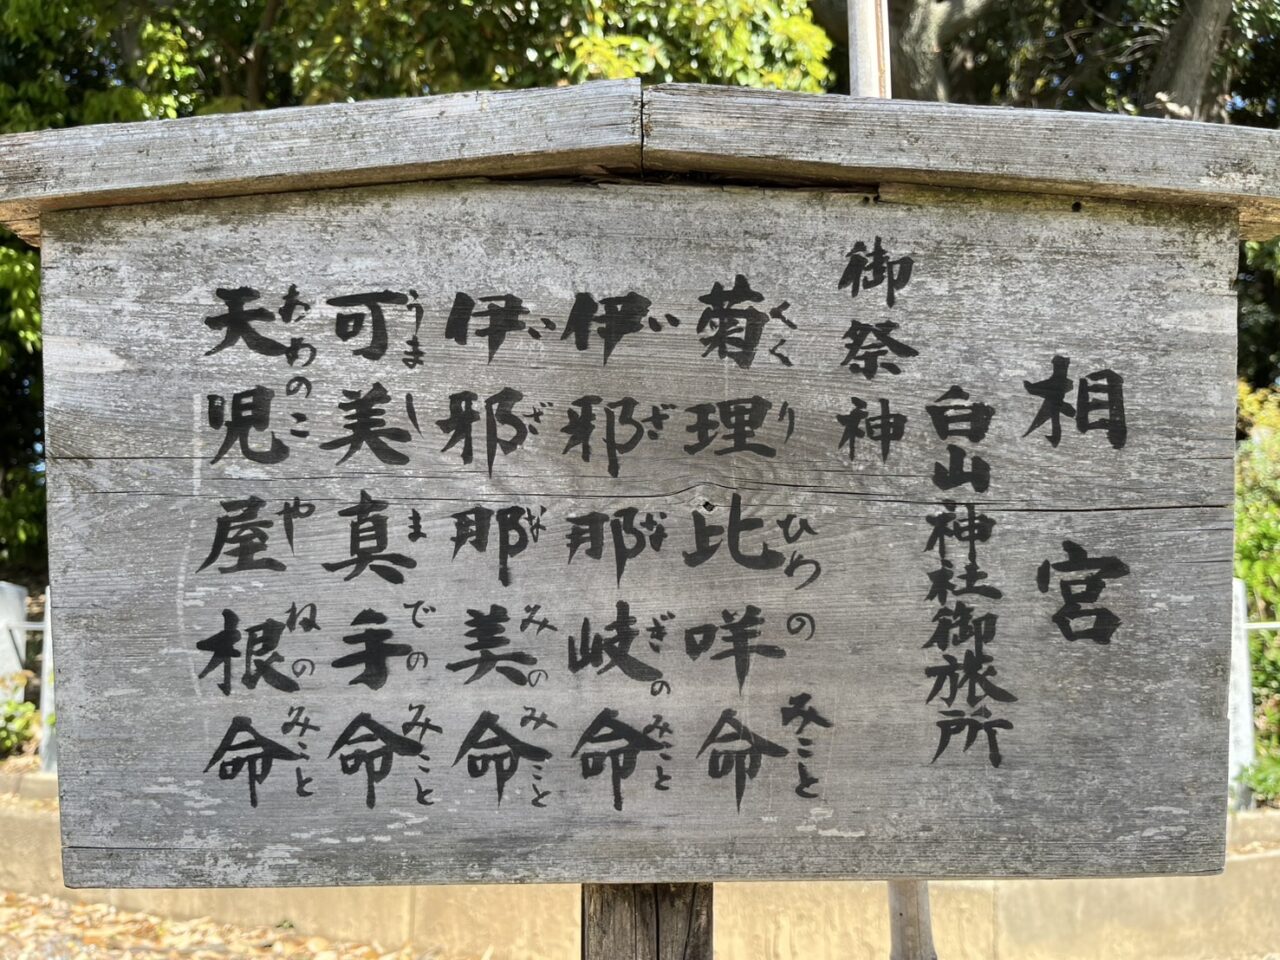 相宮
白山神社御旅所
御祭神
菊理比咩命
くくりひめのみこと
伊邪那岐命
いざなぎのみこと
伊邪那美命
いざなみのみこと
可美真手命
うましまでのみこと
天児屋根命
あめのこやねのみこと